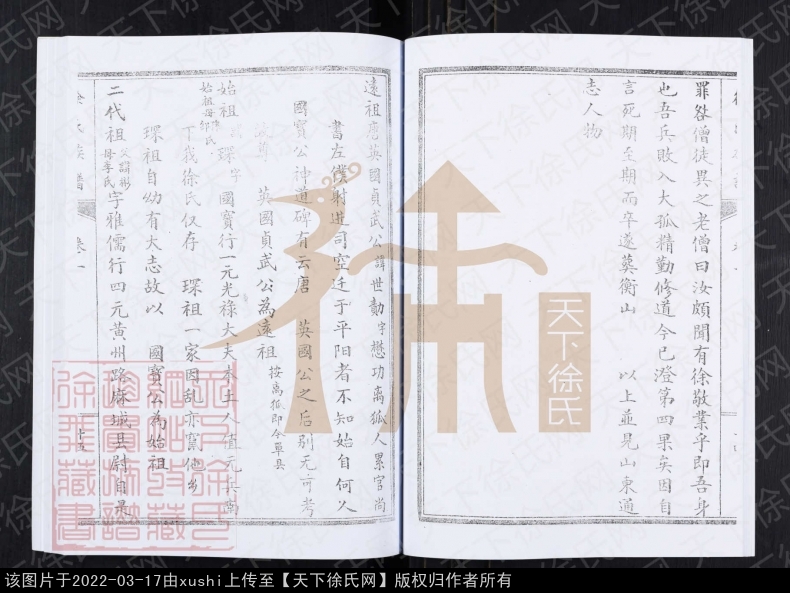 罪咎僧徒異之老僧曰汝頗聞有徐敬業乎即吾身
也吾兵敗入大孤精勤修道今已澄第四果矣因自
言死期至期而卒遂葬衡山 以上並見山東通
志人物
遠祖唐英國貞武公諱世勣字懋功离狐人累官尚
書左僕射進司空迁于平阳者不知始自何人
國寶公神道碑有云唐 英國公之后别无可考
英國貞武公為遠祖按离狐即今單县
始祖 琛字國寶行一元光禄大夫本土人值元兵
始祖母邹氏
丁我徐氏仅存 琛祖一家因乱亦窜他乡
琛祖自幼有大志故以 國寶公為始祖
二代祖父諱彬母李氏字雅儒行四元黄州路麻城县尉自杲
卷一
十五
天下徐氏
天下徐氏网
该图片于2022-03-17由xushi上传至【天下徐氏网】版权归作者所有